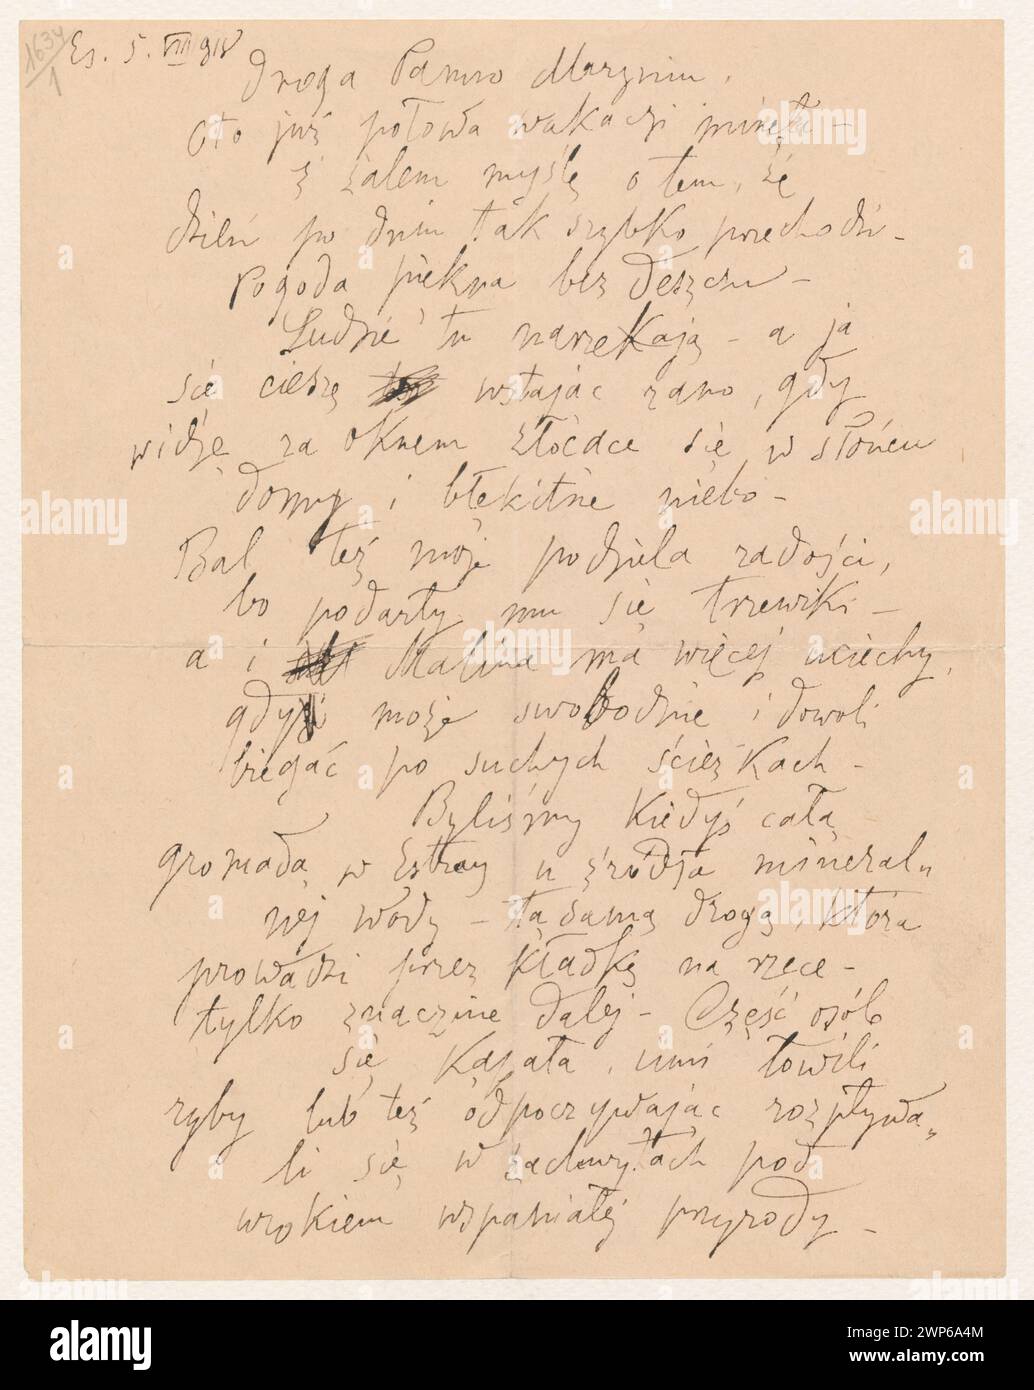 1634
1
Es. 5. VIII 918
Droga Panno Maryniu,
Oto już połowa wakacji minęła –
z żalem myślę o tem, że
dzień po dniu tak szybko przechodzi –
Pogoda piękna bez deszczu –
Ludzie tu narzekają – a ja
się cieszę wstając rano, gdy
widzę za oknem złocące się w słońcu
domy i błękitne niebo –
Bal też moje podziela radości,
bo podarły mu się trzewiki –
a i Malina ma więcej uciechy,
gdyż może swobodnie i dowoli
biegać po suchych ścieżkach –
Byliśmy kiedyś całą
gromadą w Estray u źródła mineral„
nej wody – tą samą drogą, która
prowadzi przez kładkę na rzece –
tylko znacznie dalej – Część osób
się kąpała, inni łowili
ryby lub też odpoczywając rozpływa„
li się w zachwytach pod
urokiem wspaniałej przyrody –
alamy
2WP6A4M
Image ID: 2WP6A4M
www.alamy.com